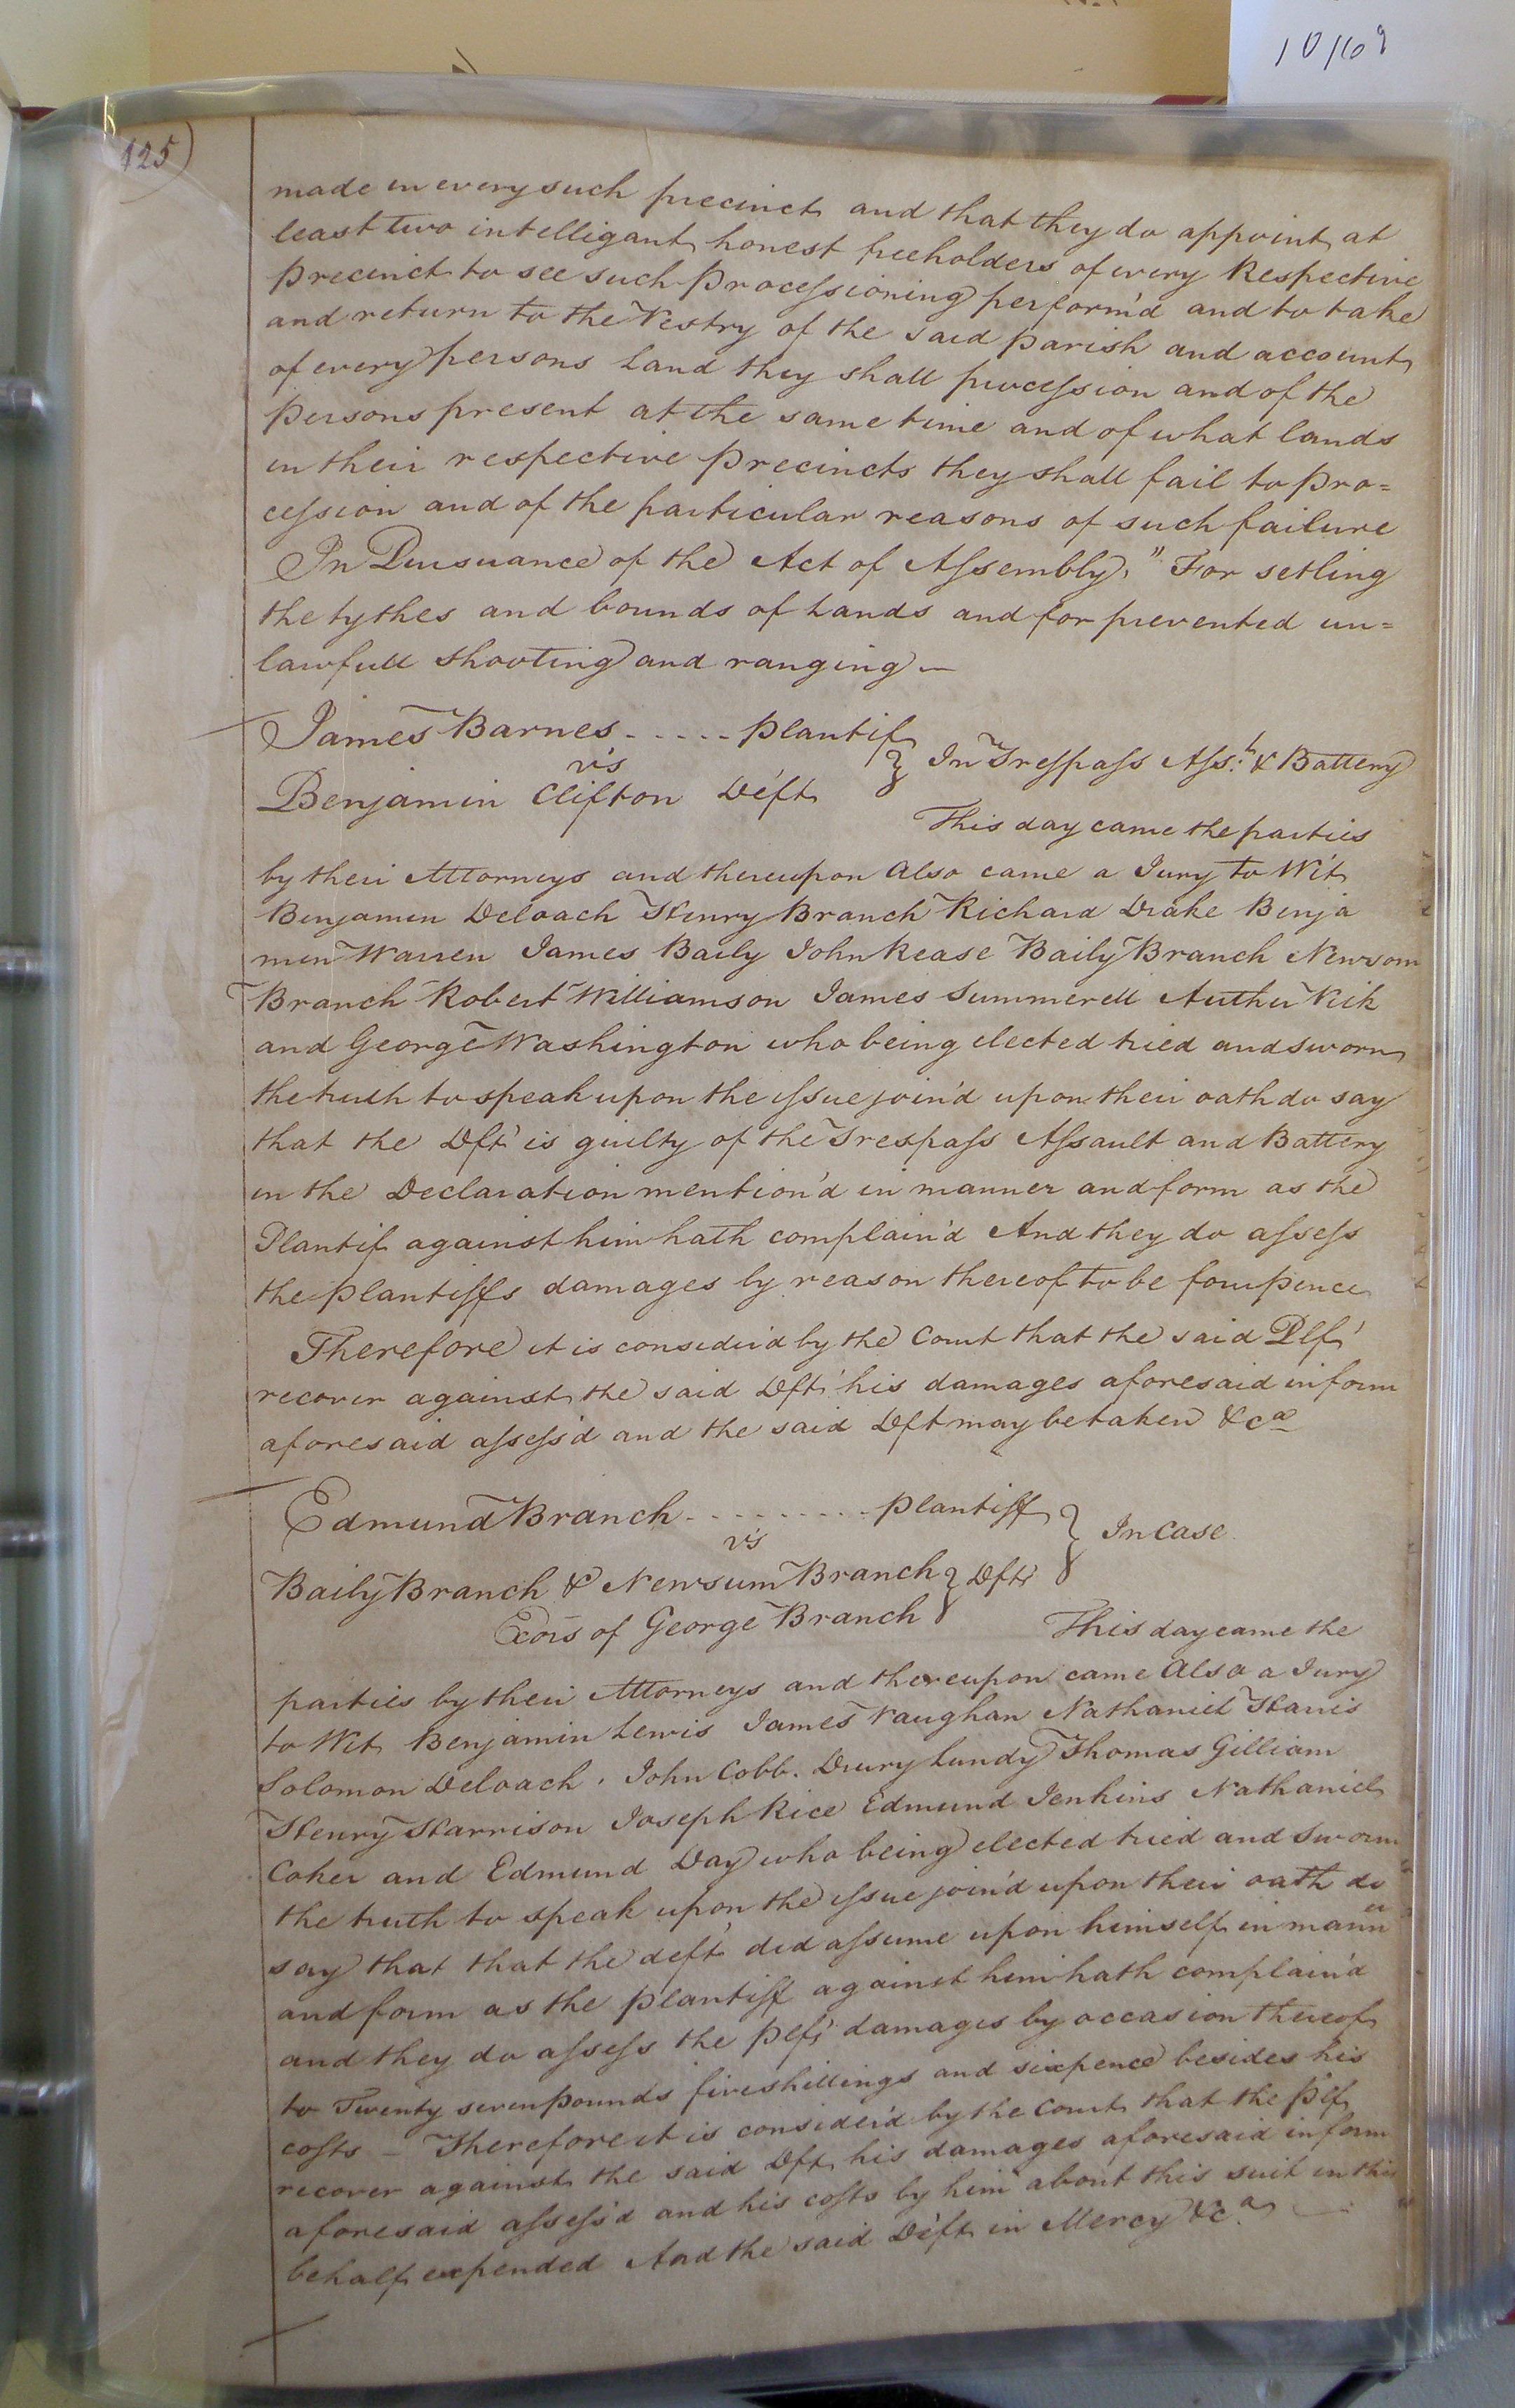 10/69
125)
made in every such precinct and that they do appoint at
least two intelligant honest freeholders of every Respective
precinct to see such processioning perform'd and to take
and return to the Vestry of the said parish and account
of every persons Land they shall procession and of the
persons present at the same time and of what lands
in their respective precincts they shall fail to pro=
cession and of the particular reasons of such failure
In Pursuance of the Act of Assembly, "For setling
the tythes and bounds of Lands and for prevented un=
lawfull shooting and ranging —
James Barnes - - - - - plantif
vs
} In Trespass Asst. & Battery
Benjamin Clifton Deft
This day came the parties
by their Attorneys and thereupon also came a Jury to Wit
Benjamin Deloach Henry Branch Richard Drake Benja
min Warren James Baily John Rease Baily Branch Newsom
Branch Robert Williamson James Summerell Auther Vick
and George Washington who being elected tried and sworn
the truth to speak upon the issue join'd upon their oath do say
that the Dft is guilty of the Trespass Assault and Battery
in the Declaration mention'd in manner and form as the
Plantif against him hath complain'd And they do assess
the plantiffs damages by reason thereof to be fourpence
Therefore it is consider'd by the Court that the said Plf
recover against the said Dft his damages aforesaid in form
aforesaid assess'd and the said Dft may be taken &ca
Edmund Branch - - - - - - - - - plantiff
vs
} In Case
Baily Branch & Newsum Branch } Dfts
Exōrs of George Branch
This day came the
parties by their Attorneys and thereupon came also a Jury
to Wit Benjamin Lewis James Vaughan Nathaniel Harris
Solomon Deloach, John Cobb. Drury Lundy Thomas Gilliam
Henry Harrison Joseph Rice Edmund Jenkins Nathaniel
Coker and Edmund Day who being elected tried and sworn
the truth to speak upon the issue join'd upon their oath do
say that that the deft did assume upon himself in manner
and form as the plantiff against him hath complain'd
and they do assess the plfs damages by occasion thereof
to Twenty seven pounds five shillings and sixpence besides his
costs — Therefore it is consider'd by the Court that the plf
recover against the said Dft his damages aforesaid in form
aforesaid assess'd and his costs by him about this suit in this
behalf expended And the said Deft in Mercy &ca